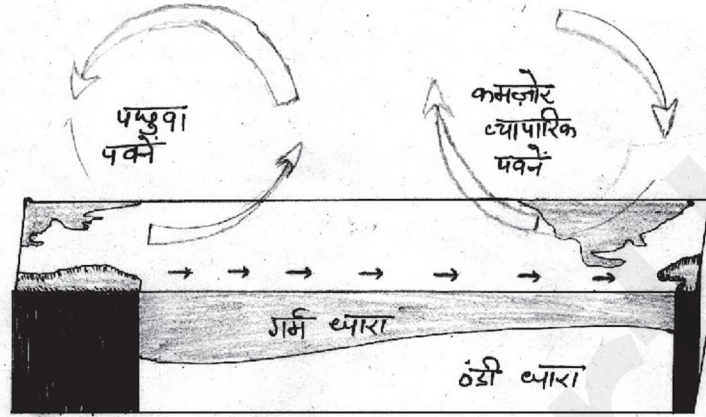 पछुवा
पवनें
कमज़ोर
व्यापारिक
पवनें
गर्म धारा
ठंडी धारा